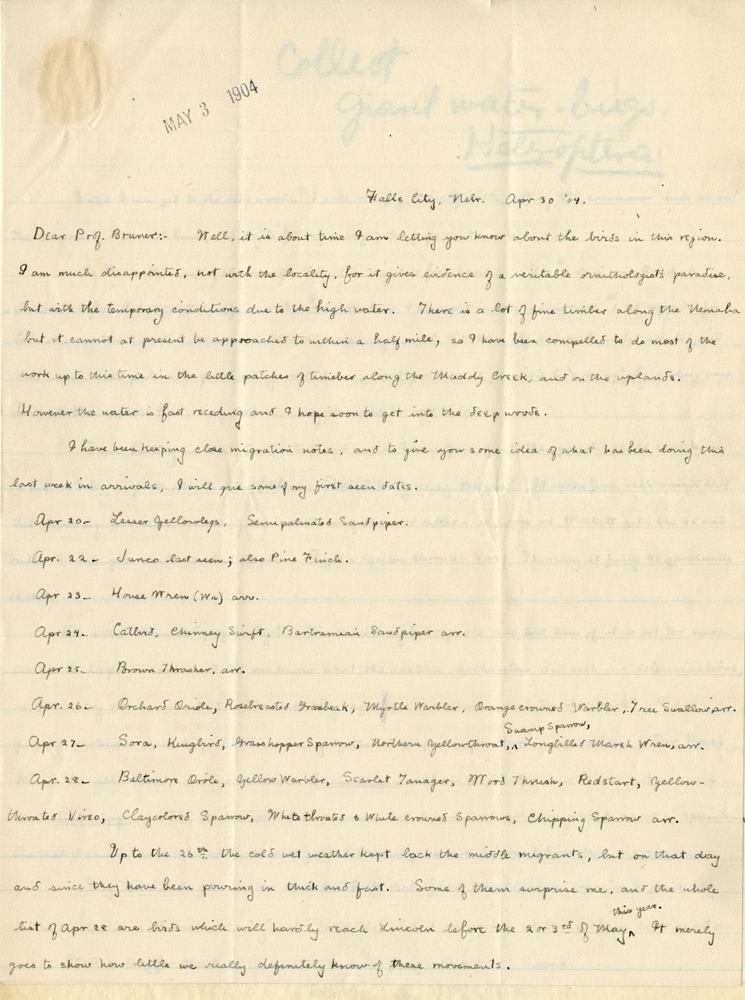 Collect
giant water-bugs.
Heteroptera
MAY 3 1904
Falls City, Nebr. Apr 30 '04.
Dear Prof. Bruner:- Well, it is about time I am letting you know about the birds in this region.
I am much disappointed, not with the locality, for it gives evidence of a veritable ornithologist's paradise,
but with the temporary conditions due to the high water. There is a lot of fine timber along the Nemaha
but it cannot at present be approached to within a half mile, so I have been compelled to do most of the
work up to this time in the little patches of timber along the Muddy Creek, and on the uplands.
However the water is fast receding and I hope soon to get into the deep woods.
I have been keeping close migration notes, and to give you some idea of what has been doing this
last week in arrivals, I will give some of my first seen dates.
Apr 20- Lesser Yellowlegs, Semipalmated Sandpiper.
Apr. 22- Junco last seen; also Pine Finch.
Apr 23- House Wren (Wn) arr.
Apr 24- Catbird, Chimney Swift, Bartramian Sandpiper arr.
Apr 25- Brown Thrasher, arr.
Apr. 26- Orchard Oriole, Rosebreasted Grosbeak, Myrtle Warbler, Orange crowned Warbler, Tree Swallow arr.
Swamp Sparrow,
Apr 27- Sora, Kingbird, Grasshopper Sparrow, Northern Yellowthroat, ^ Longbilled Marsh Wren, arr.
Apr. 28- Baltimore Oriole, Yellow Warbler, Scarlet Tanager, Wood Thrush, Redstart, Yellow-
throated Vireo, Claycolored Sparrow, White throated & White crowned Sparrows, Chipping Sparrow arr.
Up to the 26th the cold wet weather kept back the middle migrants, but on that day
and since they have been pouring in thick and fast. Some of them surprise me, and the whole
this year.
list of Apr 28 are birds which will hardly reach Lincoln before the 2 or 3rd of May ^ It merely
goes to show how little we really definitely know of these movements.